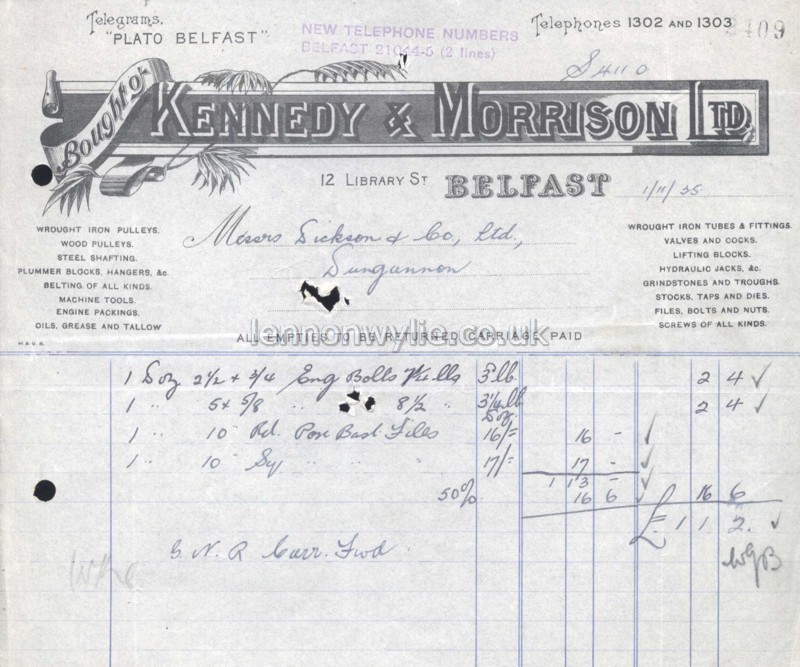 Telegrams.
"PLATO BELFAST".
NEW TELEPHONE NUMBERS
BELFAST 21044-5 (2 lines)
Telephones 1302 AND 1303
409
S 4110
Bought of
KENNEDY & MORRISON LTD.
12 LIBRARY ST BELFAST 1/11/35
Messrs Dickson & Co, Ltd.,
Dungannon
WROUGHT IRON PULLEYS.
WOOD PULLEYS.
STEEL SHAFTING.
PLUMMER BLOCKS, HANGERS, &c.
BELTING OF ALL KINDS.
MACHINE TOOLS.
ENGINE PACKINGS.
OILS, GREASE AND TALLOW
WROUGHT IRON TUBES & FITTINGS.
VALVES AND COCKS.
LIFTING BLOCKS.
HYDRAULIC JACKS, &c.
GRINDSTONES AND TROUGHS.
STOCKS, TAPS AND DIES.
FILES, BOLTS AND NUTS.
SCREWS OF ALL KINDS.
lennonwylie.co.uk
ALL EMPTIES TO BE RETURNED CARRIAGE PAID
1 Doz 2 1/2 x 3/4 Eng Bolts 7 lb 2 4
1 " 5 x 5/8 " 8 1/2 " 2 4
Doz
1 " 10" Rd. Bast. Files 16/= 16 -
1 " 10" Sq " " " 17/= 17 -
1 13 -
50% 16 6 16 6
£ 1 1 2.
G. N. R Carr. Fwd.
WGB